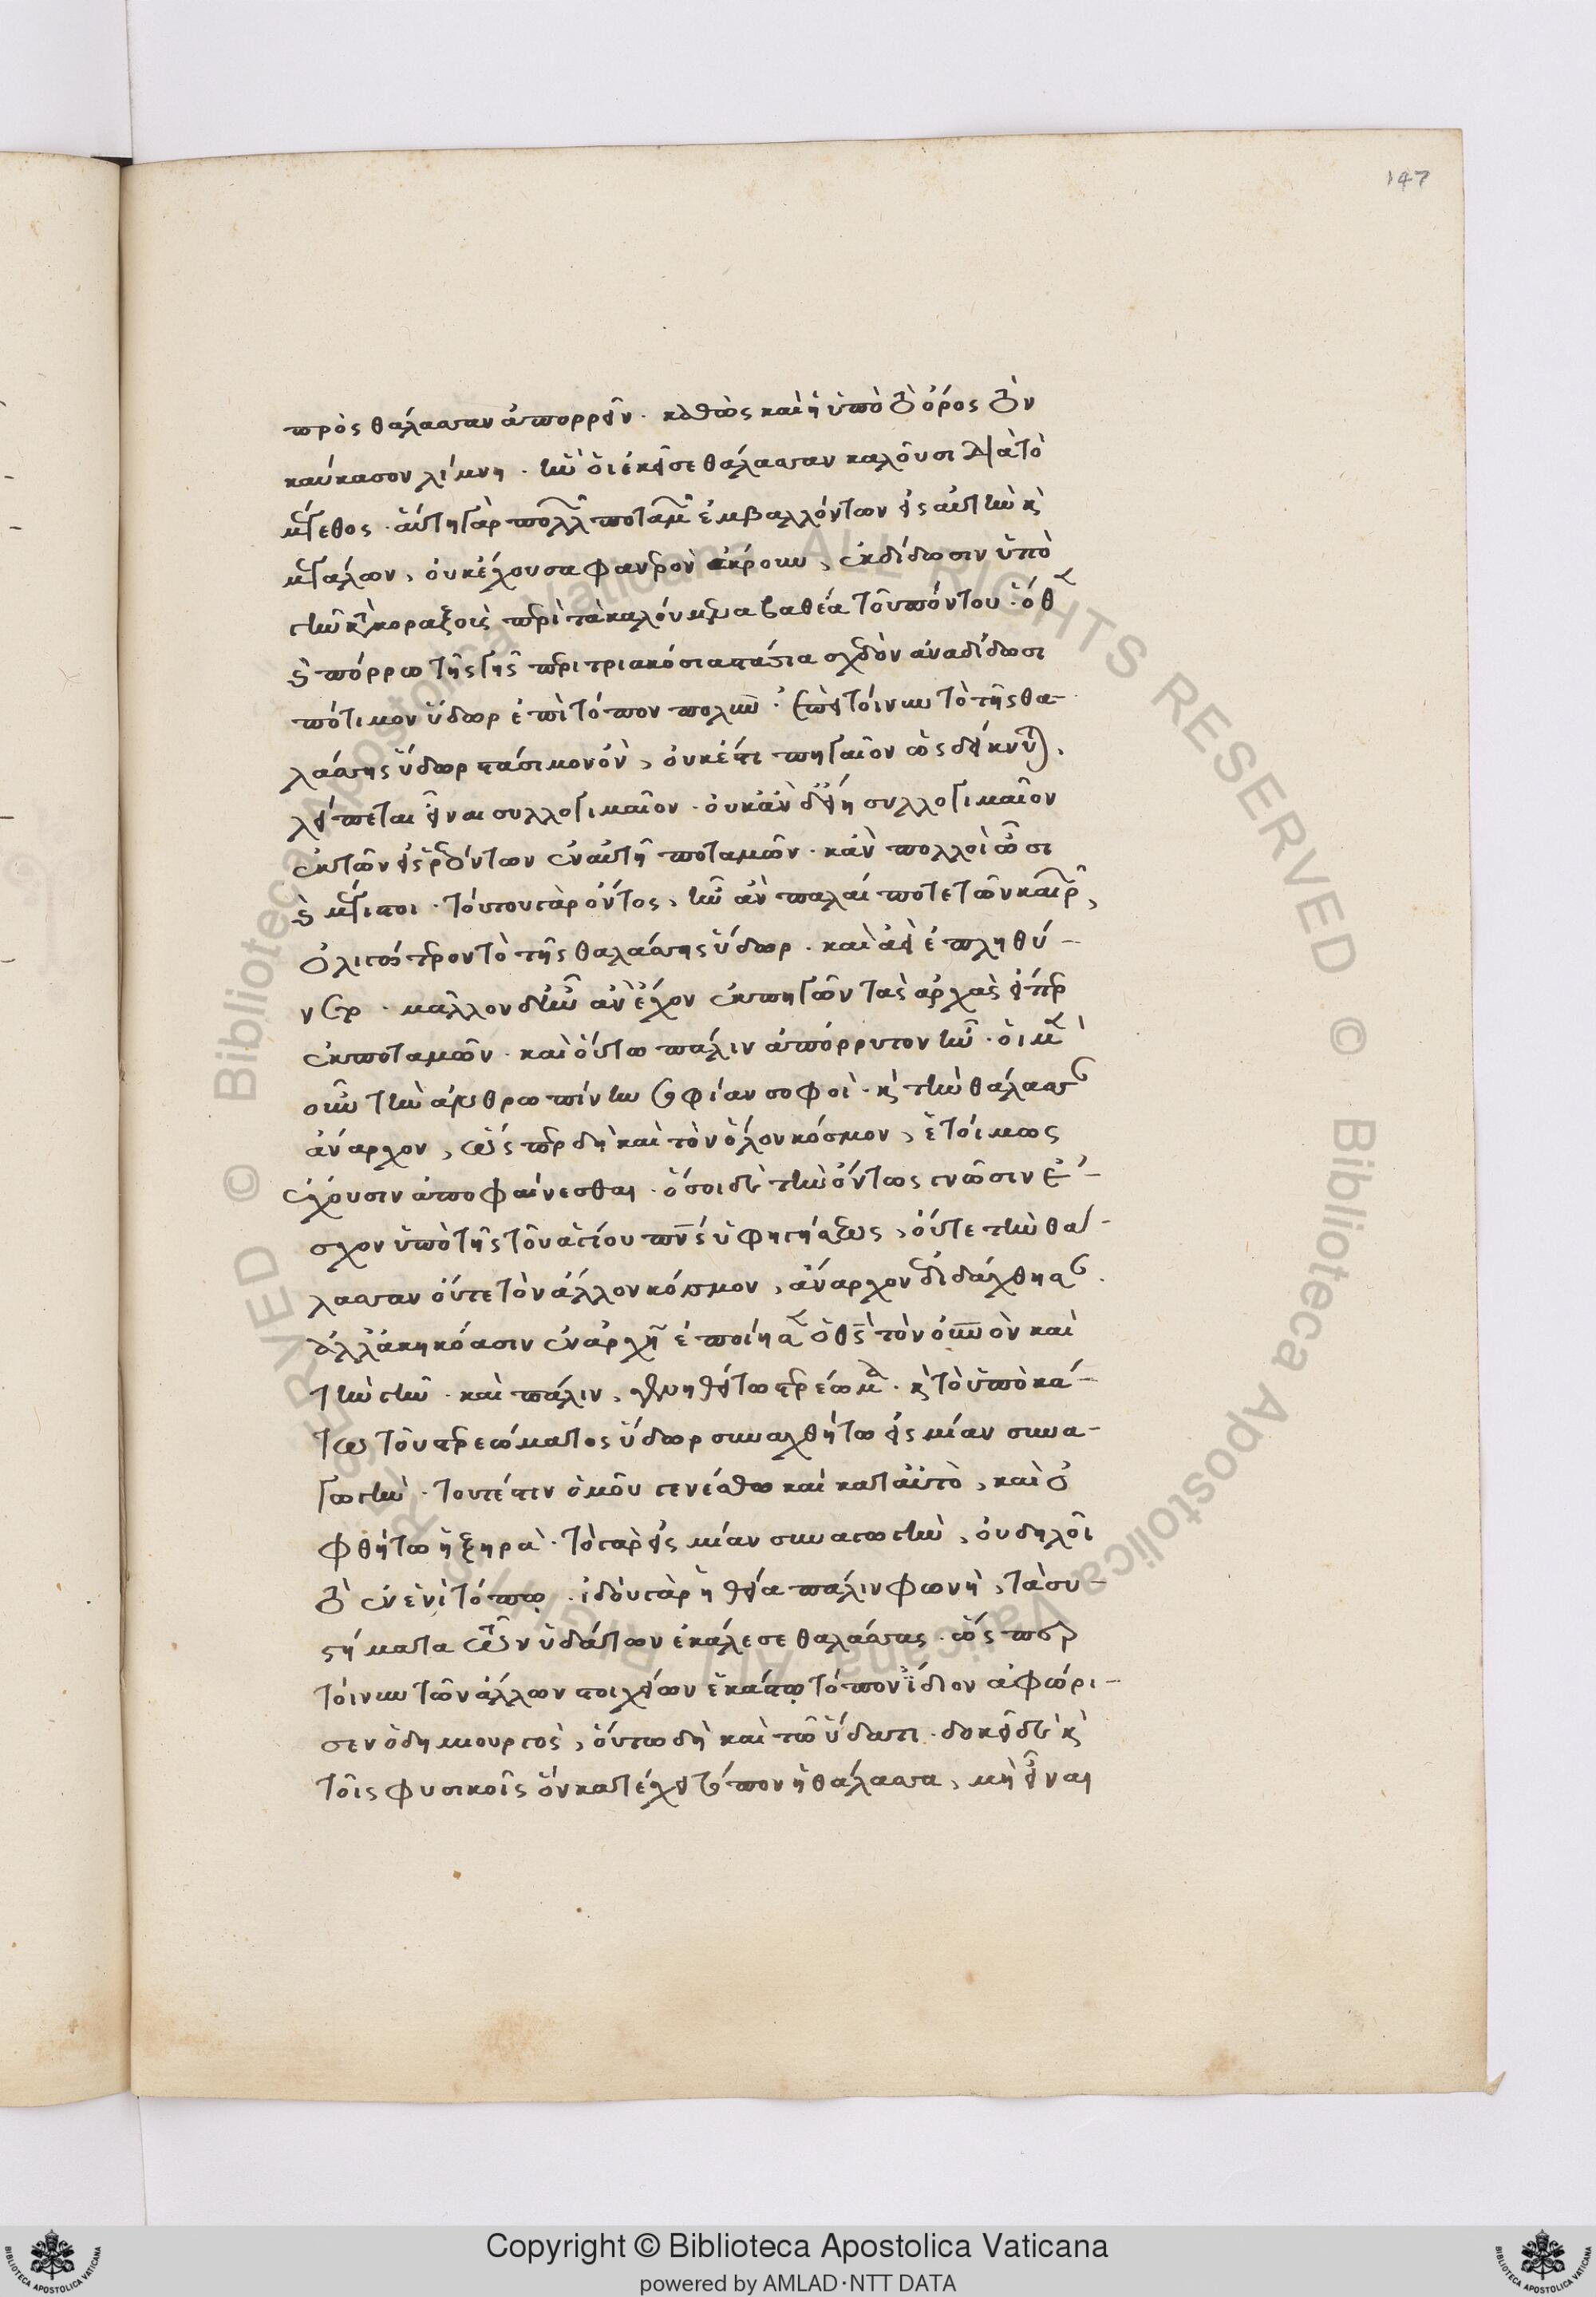 147
πρὸς θάλασσαν ἀπορρεῖν · καθὼς καὶ ἡ ὑπὸ τὸ ὄρος τὸν
καύκασον λίμνη · ἣν οἱ ἐκεῖσε θάλασσαν καλοῦσι διὰ τὸ
μέγεθος · αὕτη γὰρ πολλῶν ποταμῶν ἐμβαλλόντων εἰς αὐτὴν καὶ
μεγάλων, οὐκ ἔχουσα φανερὸν ἔκρουν, ἐκδίδωσιν ὑπὸ
γῆν κατὰ κοραξοὺς περὶ τὰ καλούμενα βαθέα τοῦ πόντου · ὅθεν
καὶ πόρρω τῆς γῆς περὶ τριακόσια στάδια σχεδὸν ἀναδίδωσι
πότιμον ὕδωρ ἐπὶ τόπον πολὺν · ἐπεὶ τοίνυν τὸ τῆς θα-
λάσσης ὕδωρ στάσιμον ὂν, οὐκ ἔστι πηγαῖον ὡς δείκνυται,
λείπεται εἶναι συλλογιμαῖον · οὐκ ἂν δὲ εἴη συλλογιμαῖον
ἐκ τῶν εἰσρεόντων ἐν αὐτῇ ποταμῶν · κἂν πολλοὶ ὦσι
καὶ μέγιστοι · τούτου γὰρ ὄντος, ἦν ἂν πάλαι ποτὲ τῶν καιρῶν,
ὀλιγώτερον τὸ τῆς θαλάσσης ὕδωρ · καὶ ἀεὶ ἐπληθύ-
νετο · μᾶλλον δ' ἦν ἂν ἔχον ἐκ πηγῶν τὰς ἀρχὰς εἴπερ
ἐκ ποταμῶν · καὶ οὕτω πάλιν ἀπόρρυτον ἦν · οἱ μὲν
οὖν τὴν ἀνθρωπίνην σοφίαν σοφοὶ · καὶ τὴν θάλασσαν
ἄναρχον, ὥσπερ δὴ καὶ τὸν ὅλον κόσμον, ἑτοίμως
ἔχουσιν ἀποφαίνεσθαι · ὅσοι δὲ τὴν ὄντως γνῶσιν ἔ-
σχον ὑπὸ τῆς τοῦ ἁγίου πνεύματος ὑφηγήσεως, οὔτε τὴν θά-
λασσαν οὔτε τὸν ἄλλον κόσμον, ἄναρχον ἐδιδάχθησαν ·
ἀλλ' ἀκηκόασιν ἐν ἀρχῇ ἐποίησεν ὁ θεὸς τὸν οὐρανὸν καὶ
τὴν γῆν · καὶ πάλιν, γενηθήτω στερέωμα · καὶ τὸ ὑποκά-
τω τοῦ στερεώματος ὕδωρ συναχθήτω εἰς μίαν συνα-
γωγὴν · τουτέστιν ὁμοῦ γενέσθω καὶ κατ' αὐτὸ, καὶ ὀ
φθήτω ἡ ξηρὰ · τὸ γὰρ εἰς μίαν συναγωγὴν, οὐ δηλοῖ
τὸ ἐν ἑνὶ τόπῳ · ἰδοὺ γὰρ ἡ θεία πάλιν φωνὴ, τὰ συ-
στήματα τῶν ὑδάτων ἐκάλεσε θαλάσσας · ὥσπερ
τοίνυν τῶν ἄλλων στοιχείων ἑκάστῳ τόπον ἴδιον ἀφώρι-
σεν ὁ δημιουργὸς, οὕτω δὴ καὶ τῷ ὕδατι · δοκεῖ δὲ καὶ
τοῖς φυσικοῖς ὃν κατέχει τόπον ἡ θάλασσα, μὴ εἶναι
Copyright © Biblioteca Apostolica Vaticana
powered by AMLAD·NTT DATA